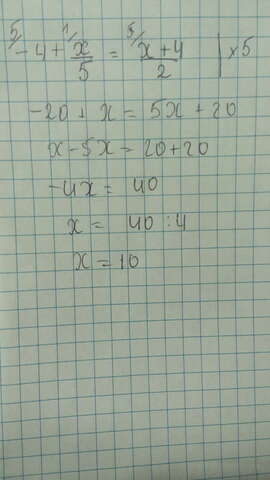 5/ -4 + 1/ x/5 = 5/ x+4/2 | x5
-20 + x = 5x + 20
x - 5x = 20 + 20
-4x = 40
x = 40 : 4
x = 10